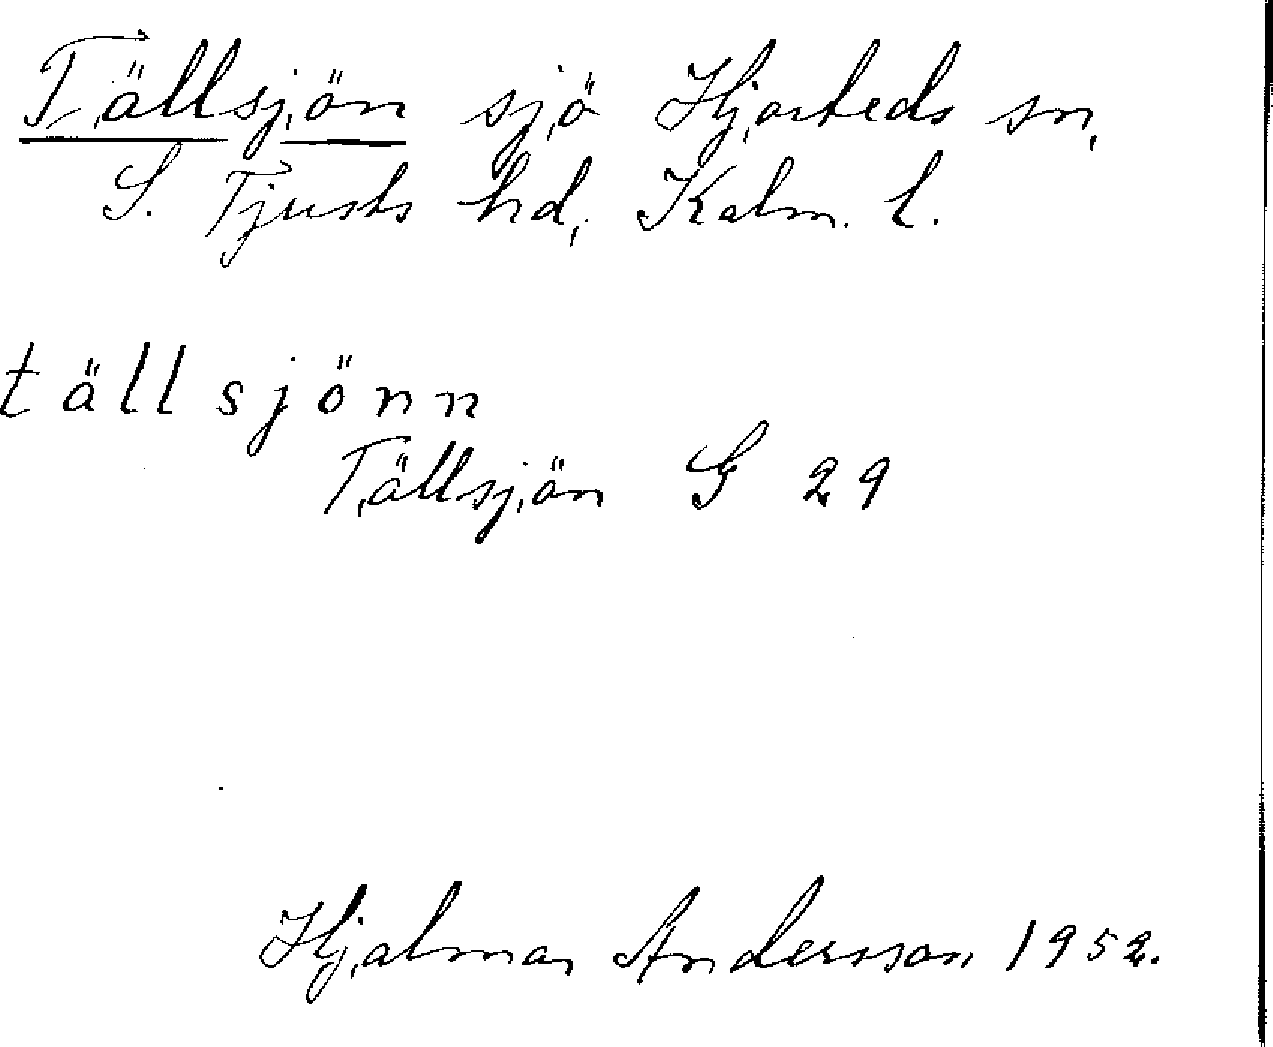 Tällsjön sjö Hjorteds sn,
S. Tjusts hd, Kalm. l.
tällsjönn
Tällsjön G 29
Hjalmar Andersson 1952.